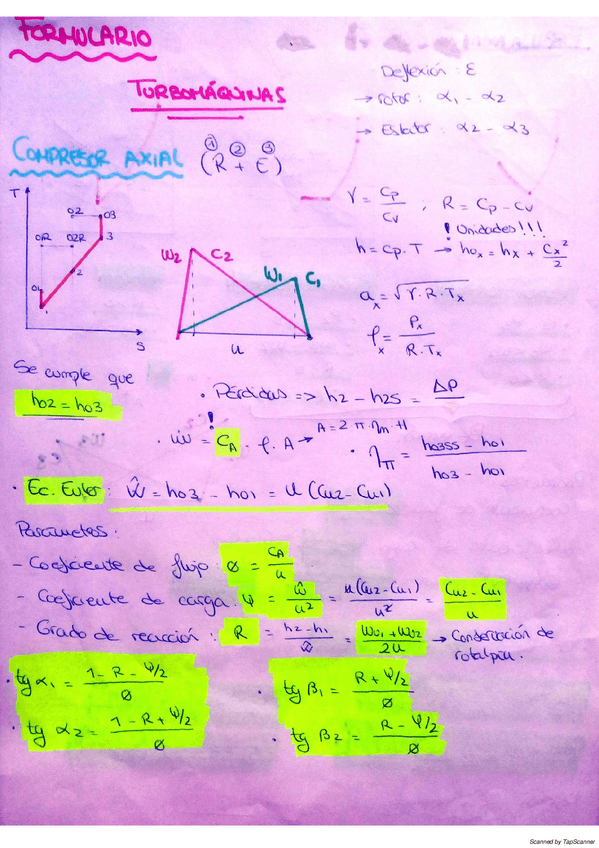 FORMULARIO
TURBOMÁQUINAS
Deflexión: ε
→ rotor: α1 - α2
→ Estator: α2 - α3
COMPRESOR AXIAL (R + E)
① ② ③
γ = Cp/Cv ; R = Cp - Cv
! Unidades!!!
h = Cp·T → h0x = hx + Cx²/2
ax = √γ·R·Tx
ρx = Px / R·Tx
T
02
03
0R
02R
3
2
01
1
S
W2
C2
W1
C1
u
Se cumple que
h02 = h03
· Pérdidas => h2 - h2s = ΔP
· ṁ = CA · ρ · A → A = 2·π·rm·H
!
· ηTT = h03ss - h01 / h03 - h01
· Ec. Euler: Ŵ = h03 - h01 = u (Cu2 - Cu1)
Parámetros:
- Coeficiente de flujo: ø = CA/u
- Coeficiente de carga: ψ = ŵ/u² = u(Cu2 - Cu1)/u² = Cu2 - Cu1/u
- Grado de reacción: R = h2 - h1/ŵ = Wu1 + Wu2/2u → Conservación de
rotalpía.
· tg α1 = 1 - R - ψ/2 / ø
· tg β1 = R + ψ/2 / ø
· tg α2 = 1 - R + ψ/2 / ø
· tg β2 = R - ψ/2 / ø
Scanned by TapScanner